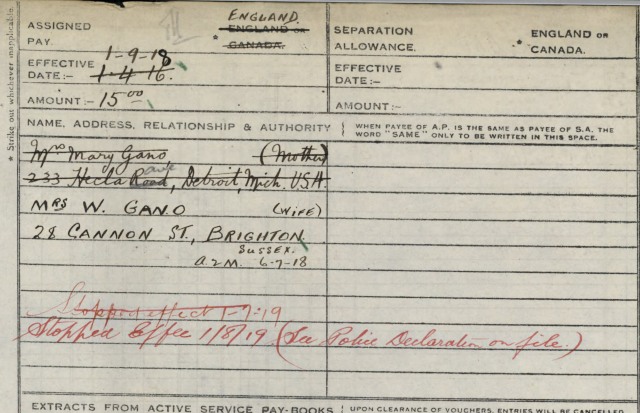 * Strike out whichever inapplicable.
ASSIGNED PAY.
ENGLAND.
* ENGLAND OR CANADA.
EFFECTIVE DATE:-
1-9-18
1.4.16.
AMOUNT:- 15 00
SEPARATION ALLOWANCE.
* ENGLAND OR CANADA.
EFFECTIVE DATE:-
AMOUNT:-
NAME, ADDRESS, RELATIONSHIP & AUTHORITY
WHEN PAYEE OF A.P. IS THE SAME AS PAYEE OF S.A. THE
WORD "SAME" ONLY TO BE WRITTEN IN THIS SPACE.
Mrs Mary Gano, (Mother)
233 Hecla Road, ave Detroit, Mich. U.S.A.
MRS W. GANO (WIFE)
28 CANNON ST., BRIGHTON.
SUSSEX.
a.2M. 6-7-18
Stopped effect 1-7-19
Stopped Effec 1/8/19 (See Police Declaration on file.)
EXTRACTS FROM ACTIVE SERVICE PAY-BOOKS
UPON CLEARANCE OF VOUCHERS, ENTRIES WILL BE CANCELLED